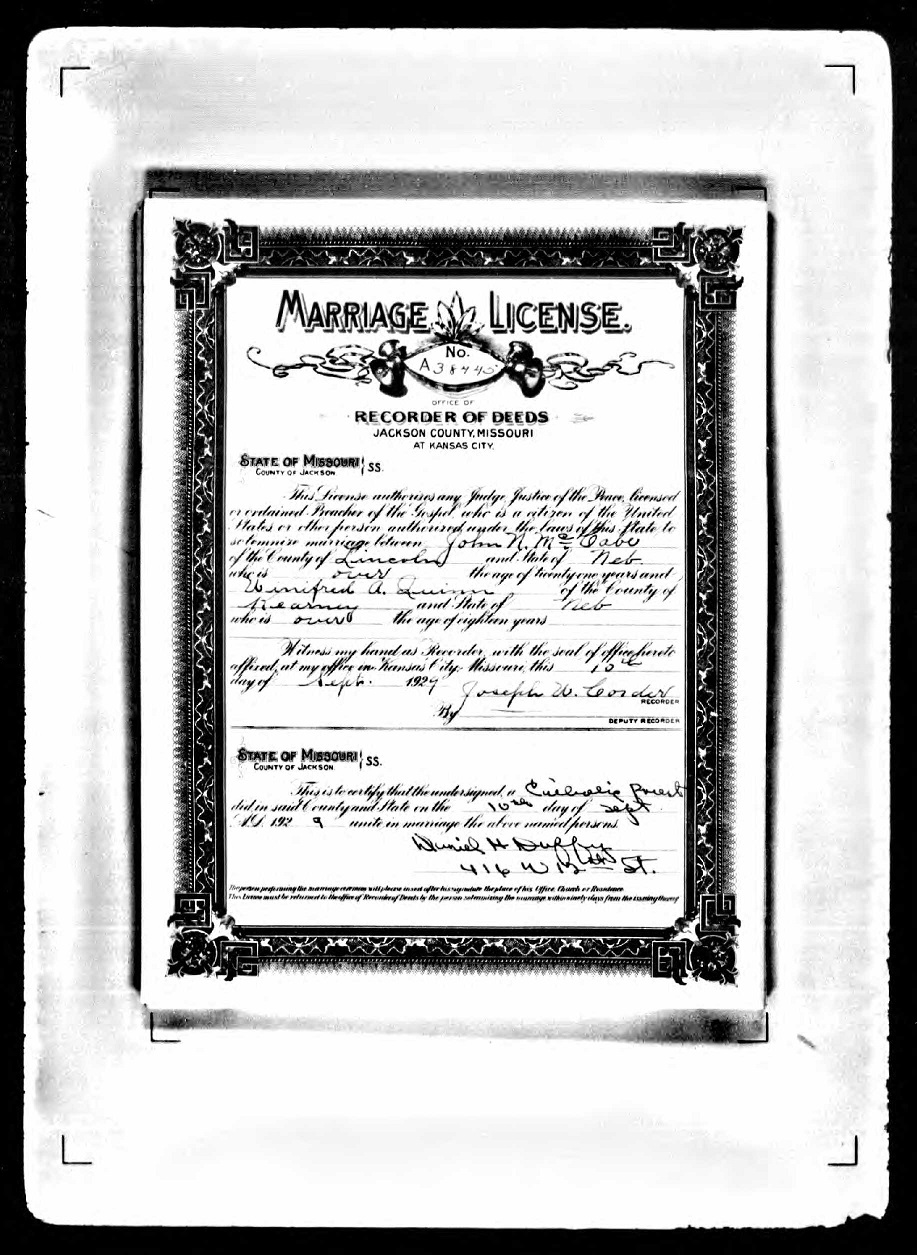 MARRIAGE LICENSE.
No.
A38445
OFFICE OF
RECORDER OF DEEDS
JACKSON COUNTY, MISSOURI
AT KANSAS CITY.
STATE OF MISSOURI
COUNTY OF JACKSON } SS.
This License authorizes any Judge, Justice of the Peace, licensed
or ordained Preacher of the Gospel, who is a citizen of the United
States or other person authorized under the laws of this State, to
solemnize marriage between John N. McCabe
of the County of Lincoln and State of Neb
who is over the age of twenty one years and
Winifred A. Quinn of the County of
Kearney and State of Neb
who is over the age of eighteen years
Witness my hand as Recorder, with the seal of office hereto
affixed, at my office in Kansas City, Missouri, this 10th
day of Sept. 1929
Joseph W. Corder
RECORDER
By
DEPUTY RECORDER
STATE OF MISSOURI
COUNTY OF JACKSON } SS.
This is to certify that the undersigned, a Catholic Priest
did in said County and State on the 10th day of Sept
A.D. 192 9 unite in marriage the above named persons.
Daniel H Duffy
416 W 12th St.
The person performing the marriage ceremony will please insert after his signature the place of his Office, Church or Residence.
This License must be returned to the office of Recorder of Deeds by the person solemnizing the marriage within ninety days from the issuing thereof